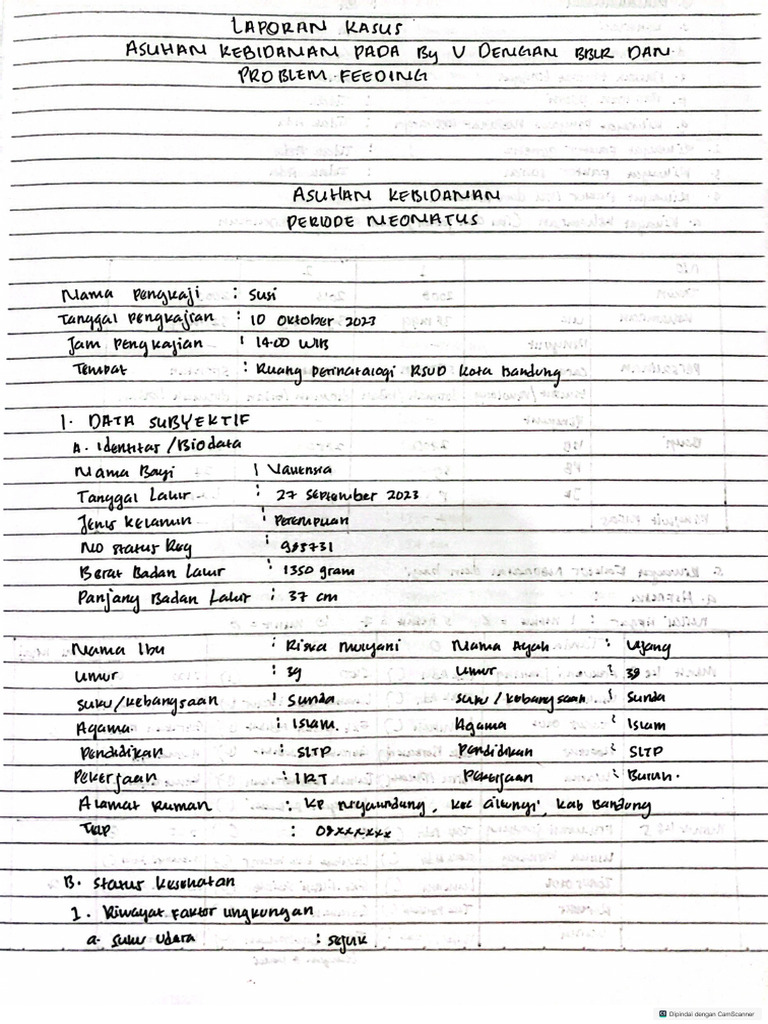 LAPORAN KASUS
ASUHAN KEBIDANAN PADA By V DENGAN BBLR DAN
PROBLEM FEEDING
ASUHAN KEBIDANAN
PERIODE NEONATUS
Nama Pengkaji : Susi
Tanggal Pengkajian : 10 Oktober 2023
Jam Pengkajian : 14.00 WIB
Tempat : Ruang Perinatalogi RSUD Kota Bandung
1. DATA SUBYEKTIF
A. Identitas / Biodata
Nama Bayi :
Tanggal Lahir : 27 September 2023
Jenis Kelamin : Perempuan
No Status Reg : 985731
Berat Badan Lahir : 1350 gram
Panjang Badan Lahir : 37 cm
Nama Ibu : Riska Mulyani Nama Ayah : Ujang
Umur : 39 Umur : 39
Suku/Kebangsaan : Sunda Suku / Kebangsaan : Sunda
Agama : Islam. Agama : Islam
Pendidikan : SLTP Pendidikan : SLTP
Pekerjaan : IRT Pekerjaan : Buruh.
Alamat Rumah : KP , Kec , Kab Bandung
Telp : 08xxxxxxx
B. Status Kesehatan
1. Riwayat Faktor Lingkungan
a. Suhu Udara : Sejuk
Dipindai dengan CamScanner